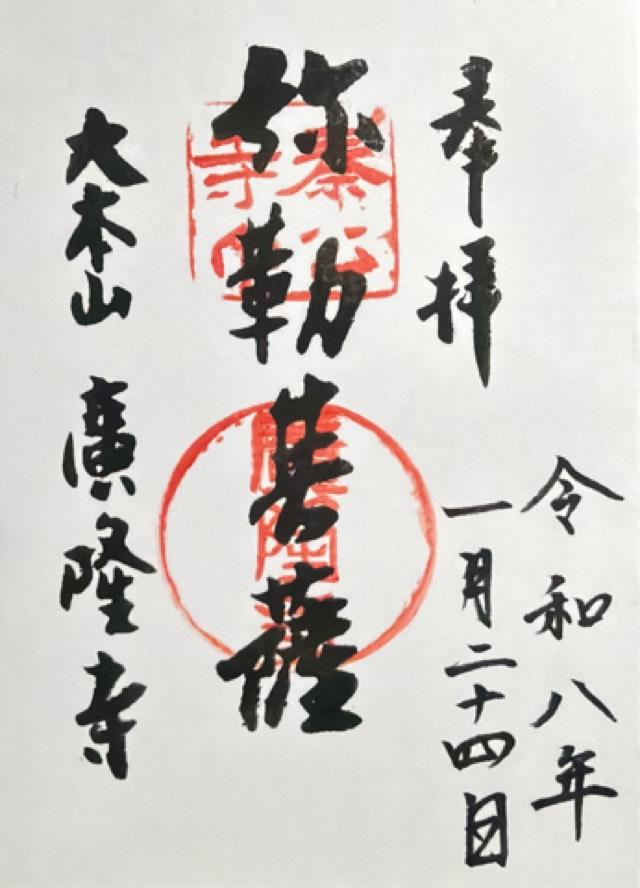 奉拝
令和八年
一月二十四日
弥勒菩薩
大本山 廣隆寺
秦公寺印
廣隆寺